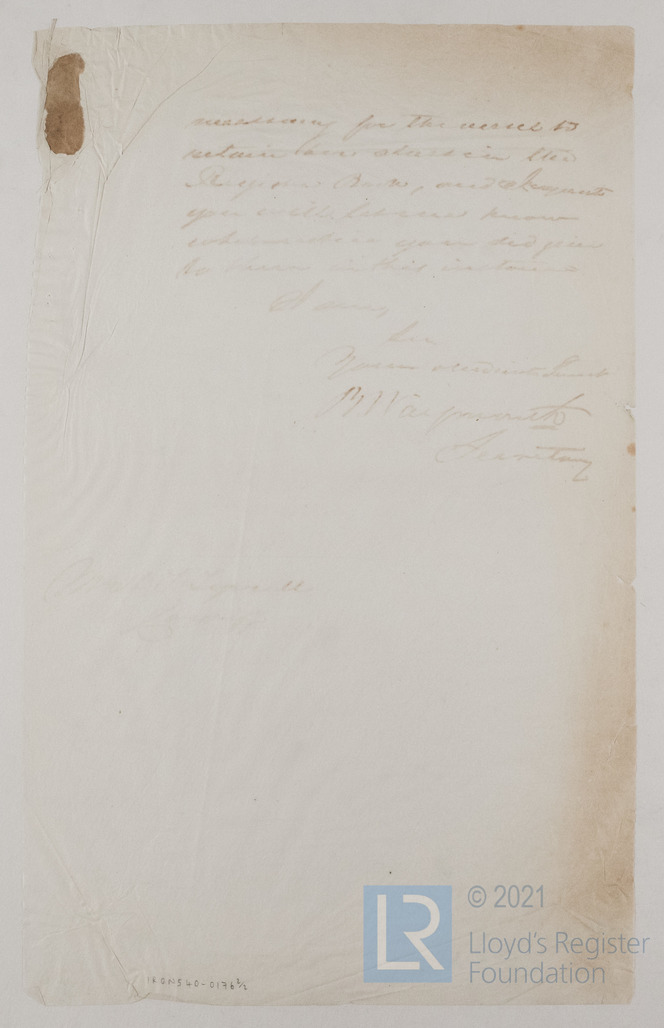 necessary for the vessel to
retain her class in the
Register Book, and I request
you will let me know
whereabouts you
to them in this instance
I am,
Sir
Your obedient Servt
B Waymouth
Secretary
IRON540-0176 2/2
© 2021
LR
Lloyd's Register
Foundation